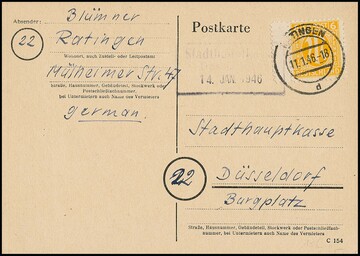 Absender:
Blümner
22
Ratingen
Wohnort, auch Zustell- oder Leitpostamt
Mülheimer Str. 47
Straße, Hausnummer, Gebäudeteil, Stockwerk oder
Postschließfachnummer,
bei Untermietern auch Name des Vermieters
german.
Postkarte
14. JAN. 1946
TINGEN
11.1.46-18
d
Stadthauptkasse
22
Düsseldorf
Burgplatz
Straße, Hausnummer, Gebäudeteil, Stockwerk oder Postschließfach-
nummer, bei Untermietern auch Name des Vermieters
C 154